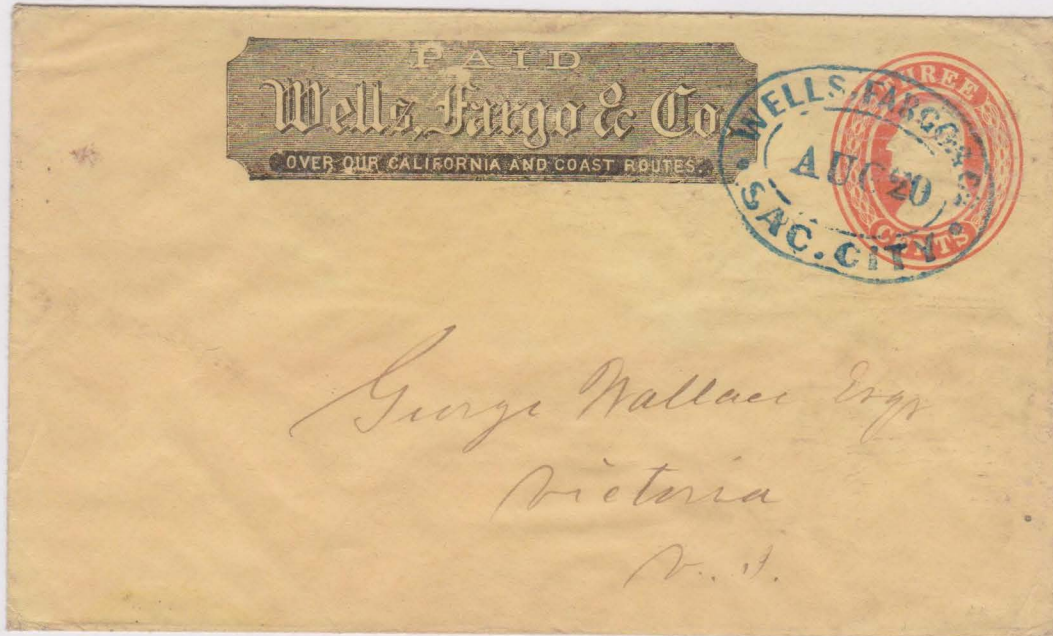 PAID
Wells, Fargo & Co.
OVER OUR CALIFORNIA AND COAST ROUTES.
THREE
CENTS
WELLS, FARGO & CO.
AUG 20
SAC. CITY
George Wallace Esqr
Victoria
V. I.